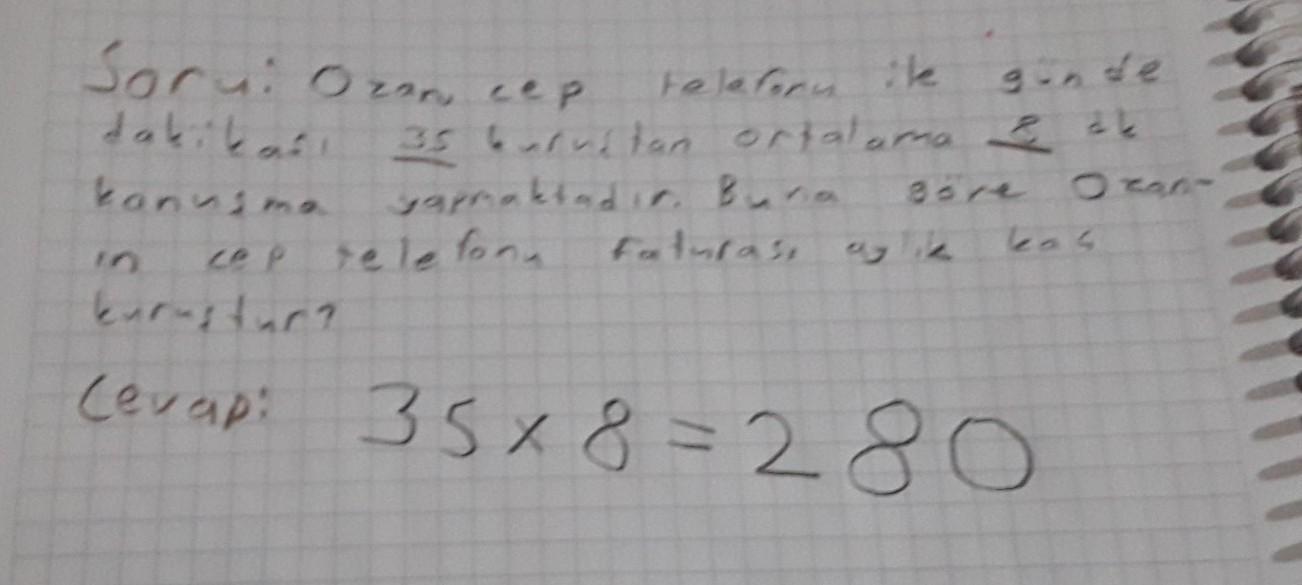 Soru: Ozan, cep telefonu ile günde
dakikası 35 kuruştan ortalama 8 dk
konuşma yapmaktadır. Buna göre Ozan-
ın cep telefonu faturası aylık kaç
kuruştur?
Cevap: 35 x 8 = 280